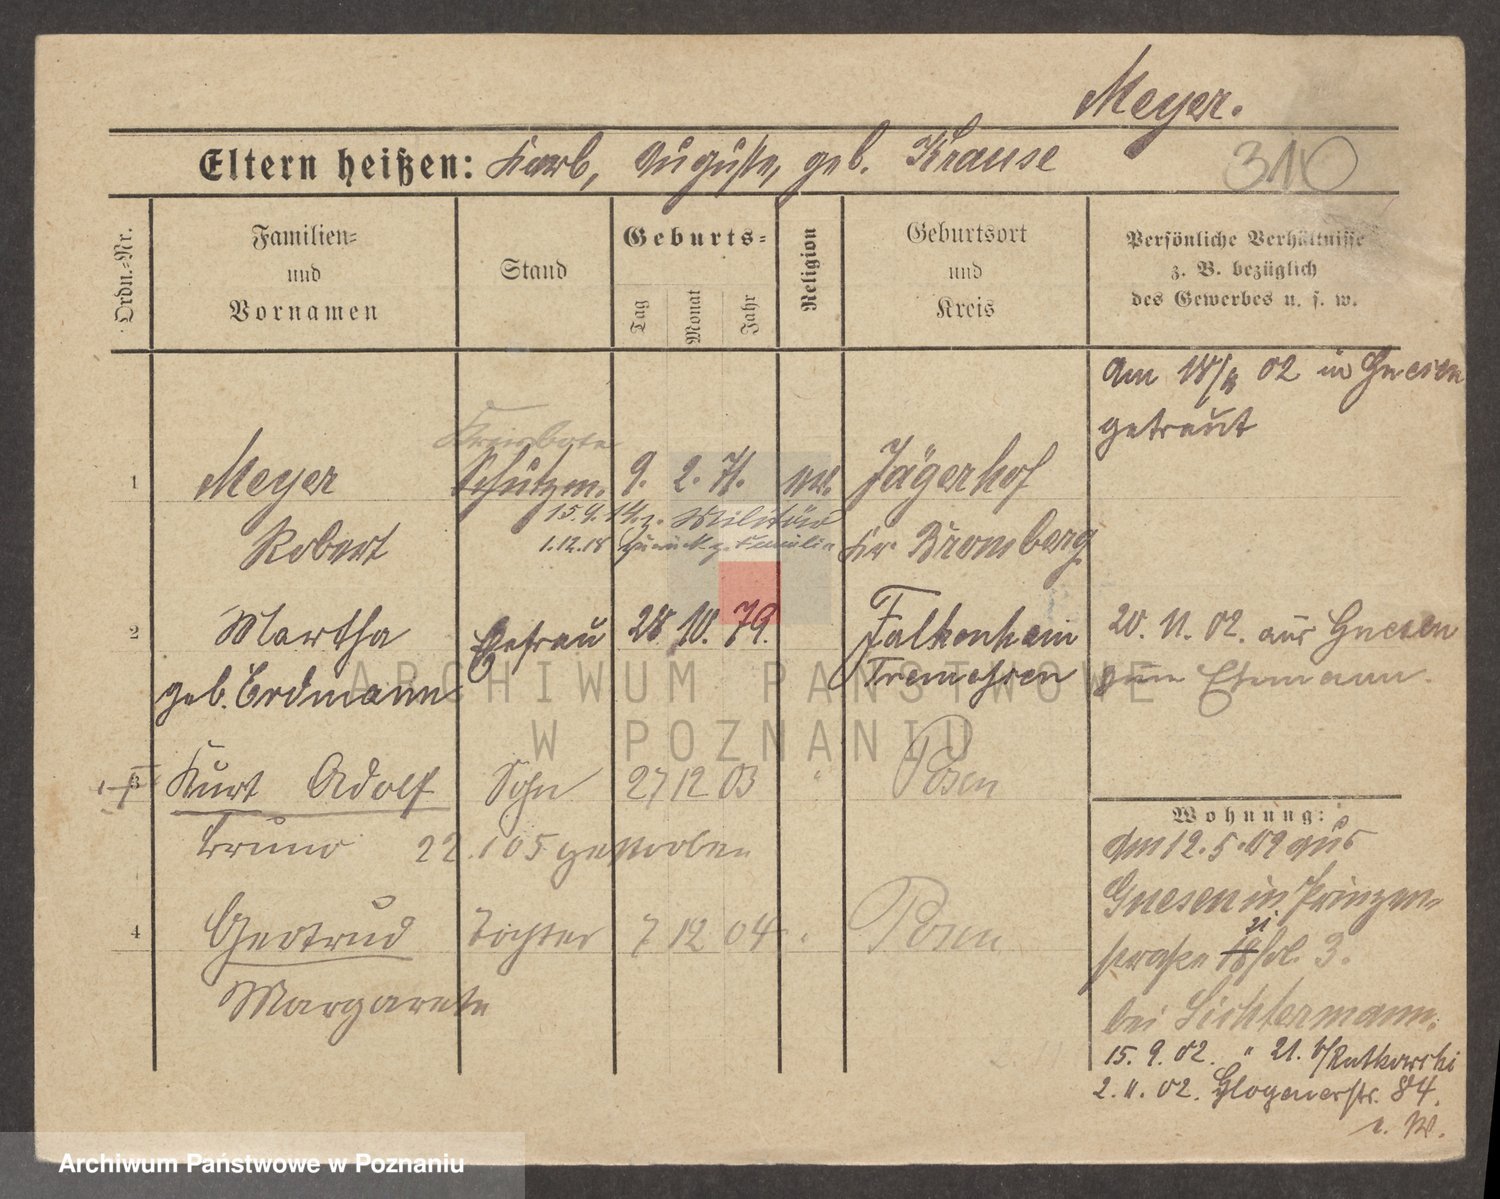 Meyer.
Eltern heißen: Karb, Auguste, geb. Krause
310
Ordn.-Nr.
Familien-
und
Vornamen
Stand
Geburts-
Tag
Monat
Jahr
Religion
Geburtsort
und
Kreis
Persönliche Verhältnisse
z. B. bezüglich
des Gewerbes u. s. w.
am 18/ 02 in Gnesen
getraut
1
Meyer
Schutzm.
9. 2. 71.
Jägerhof
15.9.14. z. Militär
Robert
1.12.18 zurück z. Familie
Kr. Bromberg
2
Martha
Ehefrau
28 10. 79.
Falkenhain
20. 11. 02. aus Gnesen
geb. Erdmann
Tremessen
zum Ehemann.
3
Kurt Adolf
Sohn
27 12 03
"
Posen
Bruno
22. 1 05 gestorben
4
Gertrud
Tochter
7 12 04
Posen
Margarete
Wohnung:
am 12.5.02 aus
Gnesen in Prinzen-
21
straße 18 3.
bei Lichtermann.
15. 9. 02. " 21. b/Rutkowski
2. 11. 02. Glogauerstr. 84.
ARCHIWUM PAŃSTWOWE
W POZNANIU
Archiwum Państwowe w Poznaniu